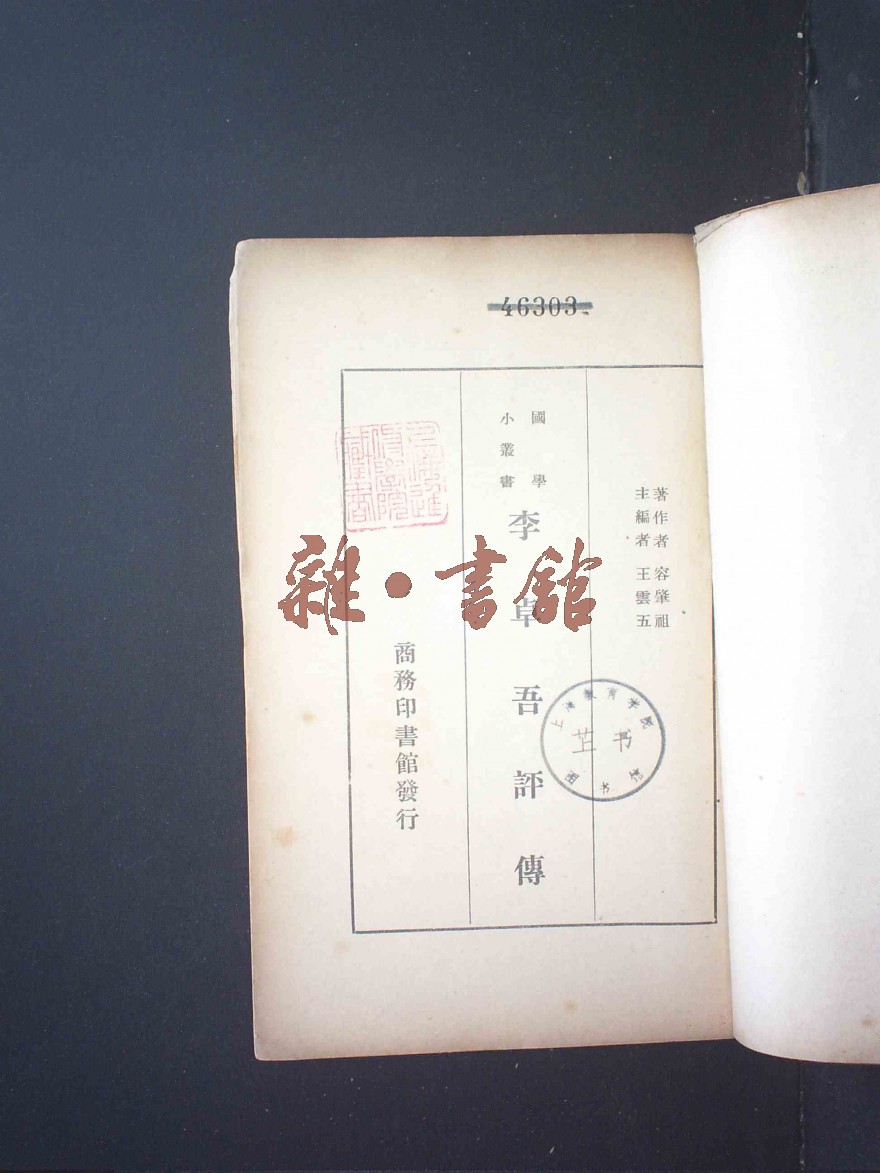 46303
著作者 容肇祖
主編者 王雲五
國學
小叢書
李卓吾評傳
商務印書館發行
雜·書館
上海教育学院
图书馆